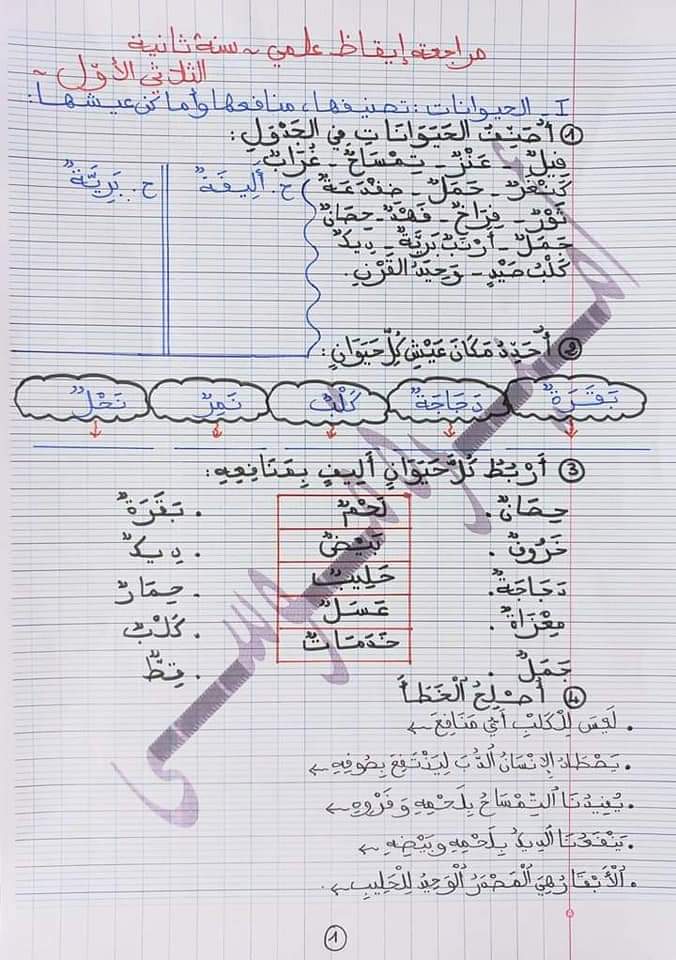 مراجعة إيقاظ علمي ~ سنة ثانية
الثلاثي الأوّل ~
I - الحيوانات: تصنيفها، منافعها وأماكن عيشها:
① أُصَنِّفُ الحَيَوَانَاتِ فِي الجَدْوَلِ:
فِيلٌ - عَنْزٌ - تِمْسَاحٌ - غُرَابٌ
كَنْغَرٌ - حَمَلٌ - ضِفْدَعَةٌ
ثَوْرٌ - فِرَاخٌ - فَهْدٌ - حِصَانٌ
جَمَلٌ - أَرْنَبٌ بَرِيَّةٌ - دِيكٌ
كَلْبُ صَيْدٍ - وَحِيدُ القَرْنِ.
ح. أَلِيفَةٌ
ح. بَرِيَّةٌ
② أُحَدِّدُ مَكَانَ عَيْشِ كُلِّ حَيَوَانٍ:
بَقَرَةٌ
دَجَاجَةٌ
كَلْبٌ
نَمِرٌ
نَحْلٌ
③ أَرْبِطُ كُلَّ حَيَوَانٍ أَلِيفٍ بِمَنَافِعِهِ:
حِصَانٌ . لَحْمٌ . بَقَرَةٌ
خَرُوفٌ . بَيْضٌ . دِيكٌ
دَجَاجَةٌ . حَلِيبٌ . حِمَارٌ
مِعْزَاةٌ . عَسَلٌ . كَلْبٌ
جَمَلٌ . خَدَمَاتٌ . قِطٌّ
④ أُصْلِحُ الْخَطَأَ
. لَيْسَ لِلْكَلْبِ أَيُّ مَنَافِعَ ←
. يَصْطَادُ الإِنْسَانُ الدُّبَّ لِيَنْتَفِعَ بِصُوفِهِ ←
. يُفِيدُنَا التِّمْسَاحُ بِلَحْمِهِ وَفَرْوِهِ ←
. يَنْفَعُنَا الدِيكُ بِلَحْمِهِ وَبَيْضِهِ ←
. الْأَبْقَارُ هِيَ الْمَصْدَرُ الْوَحِيدُ لِلْحَلِيبِ ←
1